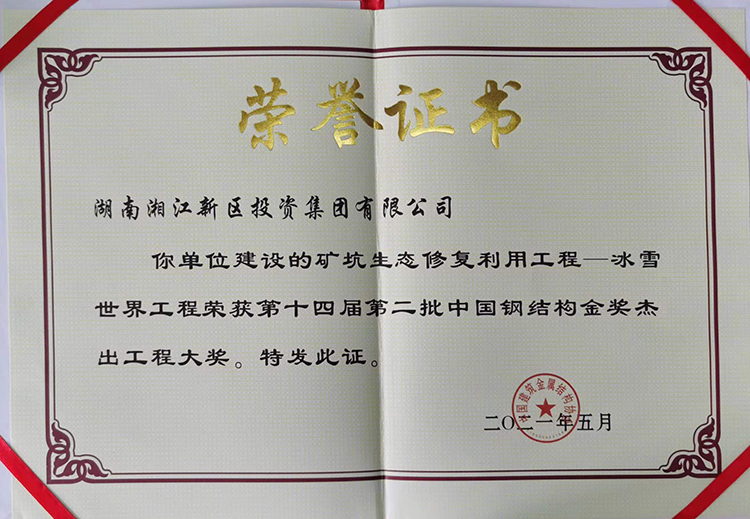 荣誉证书
湖南湘江新区投资集团有限公司
你单位建设的矿坑生态修复利用工程—冰雪
世界工程荣获第十四届第二批中国钢结构金奖杰
出工程大奖。特发此证。
中国建筑金属结构协会
二〇二一年五月